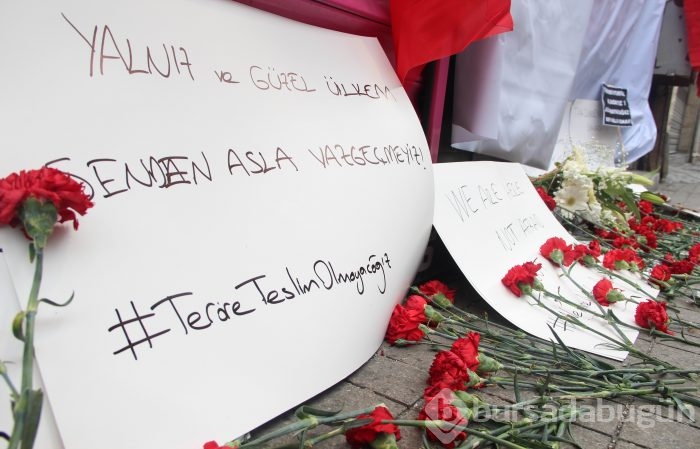 YALNIZ ve GÜZEL ÜLKEM
SENDEN ASLA VAZGEÇMEYİZ!
#TeröreTeslimOlmayacağız
WE ARE HERE
NOT AFRAID
bursadabugün